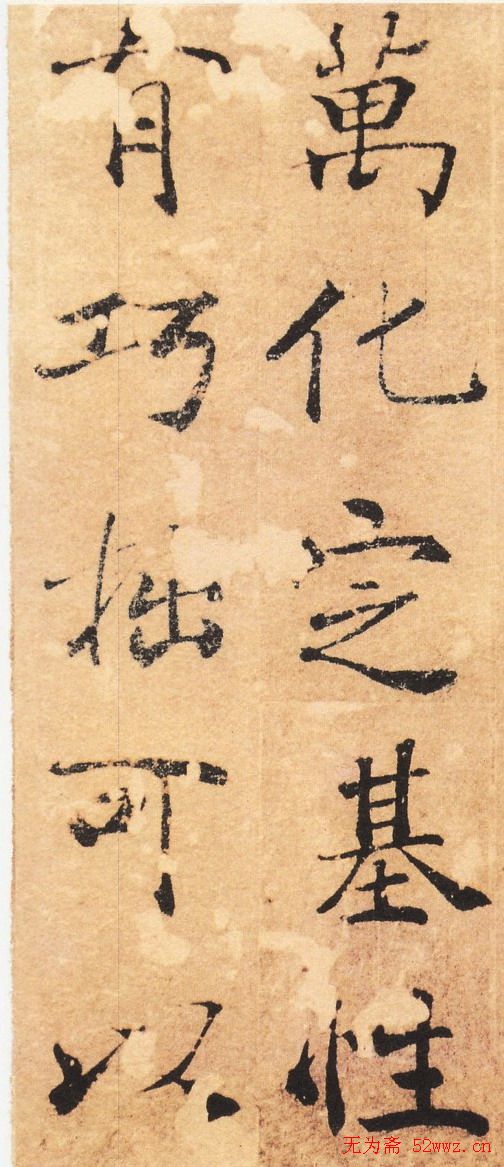 萬化定基性
有巧拙可以
无为斋 52wwz.cn